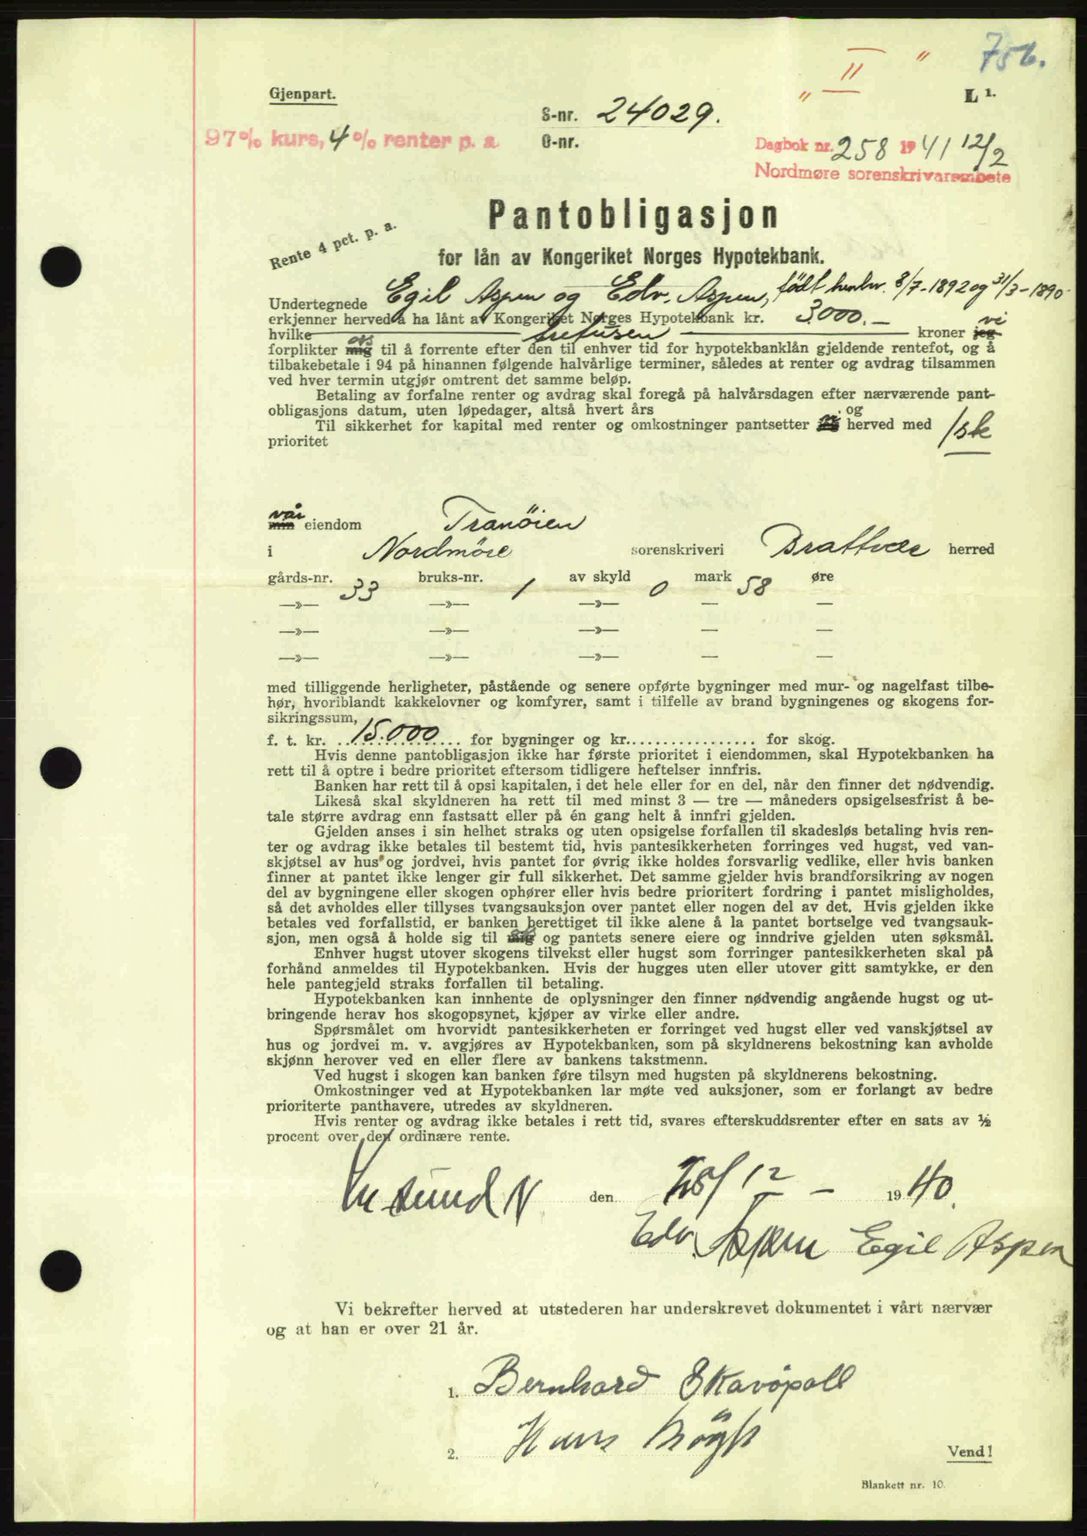 756.
" II "
Gjenpart.
L 1.
S-nr. 24029.
97% kurs, 4% renter p. a.
O-nr.
Dagbok nr. 258 1941 12/2
Nordmøre sorenskrivarembete
Pantobligasjon
Rente 4 pct. p. a.
for lån av Kongeriket Norges Hypotekbank.
Undertegnede Egil Aspen og Edv. Aspen, født henhv. 8/7-1892 og 31/3-1890
erkjenner herved å ha lånt av Kongeriket Norges Hypotekbank kr. 3000.-
hvilke tretusen kroner jeg vi
forplikter mig oss til å forrente efter den til enhver tid for hypotekbanklån gjeldende rentefot, og å
tilbakebetale i 94 på hinannen følgende halvårlige terminer, således at renter og avdrag tilsammen
ved hver termin utgjør omtrent det samme beløp.
Betaling av forfalne renter og avdrag skal foregå på halvårsdagen efter nærværende pant-
obligasjons datum, uten løpedager, altså hvert års og
Til sikkerhet for kapital med renter og omkostninger pantsetter herved med 1ste
prioritet
vår
min eiendom Tranöien
i Nordmöre sorenskriveri Brattvær herred
gårds-nr. 33 bruks-nr. 1 av skyld 0 mark 58 øre
—»— —»— —»— — —
—»— —»— —»— — —
—»— —»— —»— — —
med tilliggende herligheter, påstående og senere opførte bygninger med mur- og nagelfast tilbe-
hør, hvoriblandt kakkelovner og komfyrer, samt i tilfelle av brand bygningenes og skogens for-
sikringssum,
f. t. kr. 15.000 for bygninger og kr. ................ for skog.
Hvis denne pantobligasjon ikke har første prioritet i eiendommen, skal Hypotekbanken ha
rett til å optre i bedre prioritet eftersom tidligere heftelser innfris.
Banken har rett til å opsi kapitalen, i det hele eller for en del, når den finner det nødvendig.
Likeså skal skyldneren ha rett til med minst 3 — tre — måneders opsigelsesfrist å be-
tale større avdrag enn fastsatt eller på én gang helt å innfri gjelden.
Gjelden anses i sin helhet straks og uten opsigelse forfallen til skadesløs betaling hvis ren-
ter og avdrag ikke betales til bestemt tid, hvis pantesikkerheten forringes ved hugst, ved van-
skjøtsel av hus og jordvei, hvis pantet for øvrig ikke holdes forsvarlig vedlike, eller hvis banken
finner at pantet ikke lenger gir full sikkerhet. Det samme gjelder hvis brandforsikring av nogen
del av bygningene eller skogen ophører eller hvis bedre prioritert fordring i pantet misligholdes,
så det avholdes eller tillyses tvangsauksjon over pantet eller nogen del av det. Hvis gjelden ikke
betales ved forfallstid, er banken berettiget til ikke alene å la pantet bortselge ved tvangsauk-
sjon, men også å holde sig til mig og pantets senere eiere og inndrive gjelden uten søksmål.
Enhver hugst utover skogens tilvekst eller hugst som forringer pantesikkerheten skal på
forhånd anmeldes til Hypotekbanken. Hvis der hugges uten eller utover gitt samtykke, er den
hele pantegjeld straks forfallen til betaling.
Hypotekbanken kan innhente de oplysninger den finner nødvendig angående hugst og ut-
bringende herav hos skogopsynet, kjøper av virke eller andre.
Spørsmålet om hvorvidt pantesikkerheten er forringet ved hugst eller ved vanskjøtsel av
hus og jordvei m. v. avgjøres av Hypotekbanken, som på skyldnerens bekostning kan avholde
skjønn herover ved en eller flere av bankens takstmenn.
Ved hugst i skogen kan banken føre tilsyn med hugsten på skyldnerens bekostning.
Omkostninger ved at Hypotekbanken lar møte ved auksjoner, som er forlangt av bedre
prioriterte panthavere, utredes av skyldneren.
Hvis renter og avdrag ikke betales i rett tid, svares efterskuddsrenter efter en sats av ½
procent over den ordinære rente.
Kr.sund N den /12 - 1940.
Edv. Aspen Egil Aspen
Vi bekrefter herved at utstederen har underskrevet dokumentet i vårt nærvær
og at han er over 21 år.
1. Bernhard Skavöpoll
2. Hans
Vend!
Blankett nr. 10.